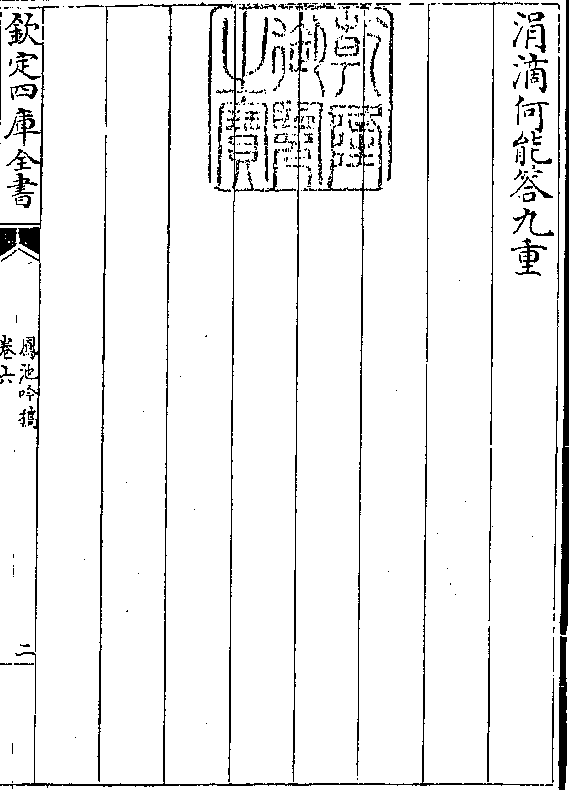 涓滴何能答九重
乾隆御覽之寶
欽定四庫全書
鳳池吟稿
卷六
二